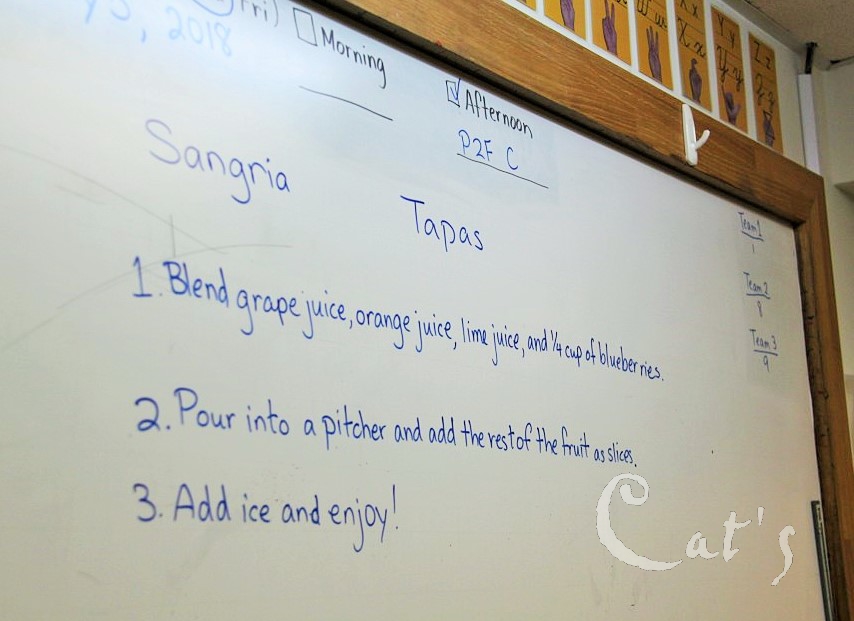 Fri)
☐ Morning
5, 2018
☑ Afternoon
P2F C
Sangria
Tapas
1. Blend grape juice, orange juice, lime juice, and ¼ cup of blueberries.
2. Pour into a pitcher and add the rest of the fruit as slices.
3. Add ice and enjoy!
Team 1
1
Team 2
8
Team 3
9
X x
Y y
Z z
Cat's